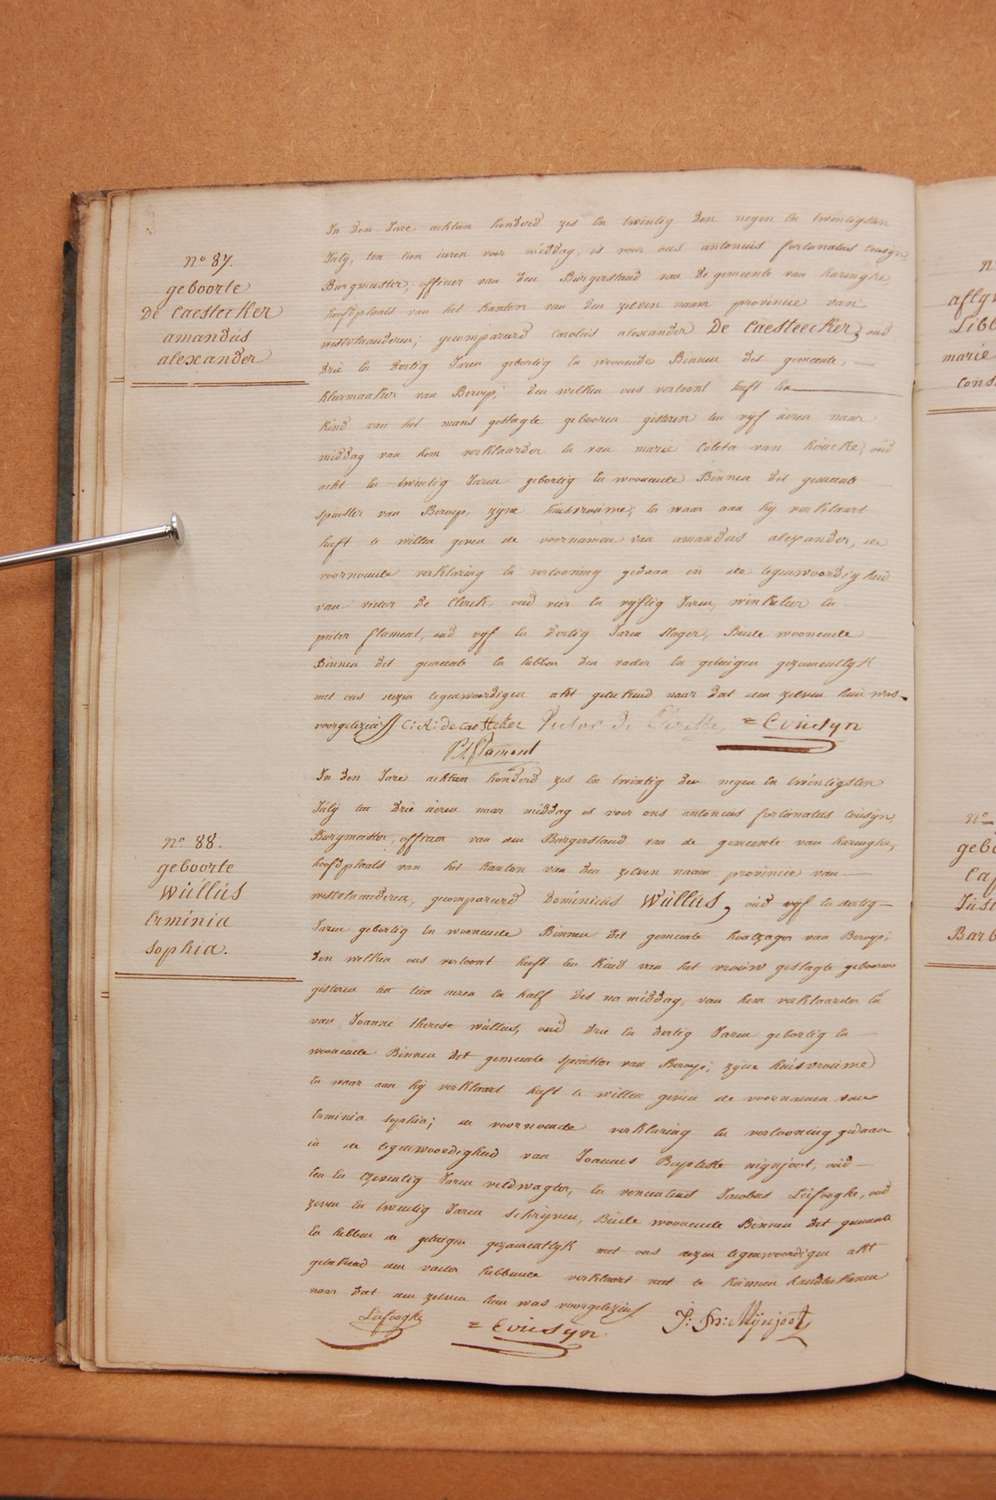 N° 87.
geboorte
De Caestecker
amandus
alexander
In den Jare achtien honderd zes en twintig den negen en twintigsten
July, ten tien uren voor middag, is voor ons antonius fortunatus cousyn
Burgmeester, officier van den Burgerstand van de gemeente van haringhe,
hoofdplaats van het kanton van den zelven naam provincie van
westvlaanderen; gecompareerd Carolus alexander De Caesteecker, oud
drie en dertig Jaren gebortig en woonende Binnen dese gemeente,
kleermaaker van Beroep; den welken ons vertoont heeft een
kind van het mans geslagte geboren gisteren ten vyf uren naar
middag van hem verklaarder en van marie Coleta van houcke, oud
acht en twintig Jaren gebortig en woonende Binnen dit gemeente
spinster van Beroep, zyne huisvrouwe; en waar aan hy verklaart
heeft te willen geven de voornamen van amandus alexander, de
voornoemde verklaring en vertooning gedaan in de tegenwoordigheid
van victor De Clerck, oud vier en vyftig Jaren, winkelier en
pieter flament, oud vyf en dertig Jaren slager, Beide woonende
Binnen dit gemeente en hebben den vader en getuigen gezamentlyk
met ons dezen tegenwoordigen akt geteekend naar dat den zelven hun was
voorgelezen // C: A: de Caesteker Victor De Clerck = Cousyn
P. Flament
N° 88.
geboorte
Wullus
Erminia
Sophia.
In den Jare achtien honderd zes en twintig den negen en twintigsten
July ten drie uren naar middag is voor ons antonius fortunatus cousyn,
Burgmeester, officier van den Burgerstand van de gemeente van haringhe,
hoofdplaats van het kanton van den zelven naam provincie van
westvlaanderen, gecompareerd Dominicus Wullus, oud vyf en dertig
Jaren gebortig en woonende Binnen dit gemeente houtzager van Beroep;
den welken ons vertoont heeft een kind van het vrouws geslagte geboren
gisteren ten tien uren en half des na middag, van hem verklaarder en
van Joanne therese wullus, oud drie en dertig Jaren gebortig en
woonende Binnen dit gemeente spinster van Beroep; zyne huisvrouwe
en waar aan hy verklaart heeft te willen geven de voornamen van
Erminia sophia; de voornoemde verklaring en vertooning gedaan
in de tegenwoordigheid van Joannes Baptiste mynjoot, oud
en tzeventig Jaren veldwagter, en Jacobus Liefooghe, oud
zeven en twintig Jaren schryver, Beide woonende Binnen dit gemeente
en hebben de getuigen gezamentlyk met ons dezen tegenwoordigen akt
geteekend den vader hebbende verklaart niet te kunnen handteekenen
naar dat den zelven hun was voorgelezen /
Liefooghe = Cousyn J: Bn: Mynjoot